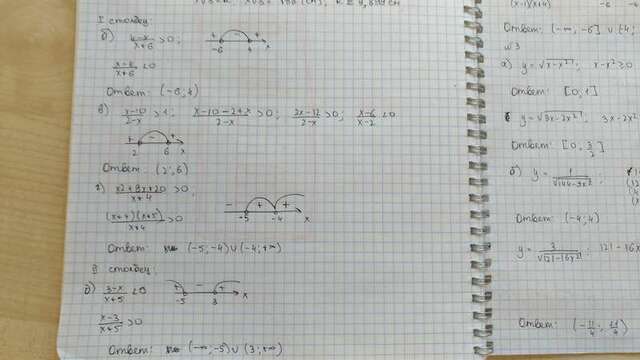 I столбец:
б) 4-x/x+6 >0;
+ - +
-6 4 x
x-4/x+6 <0
Ответ: (-6;4)
в) x-10/2-x >1; x-10-2+x/2-x >0; 2x-12/2-x >0; x-6/x-2 <0
+ - +
2 6 x
Ответ: (2;6)
x2+9x+20/x+4 >0;
- + +
-5 -4 x
(x+4)(x+5)/x+4 >0
Ответ: (-5;-4)∪(-4;+∞)
II столбец:
3-x/x+5 <0
+ - +
-5 3 x
x-3/x+5 >0
Ответ: (-∞;-5)∪(3;+∞)
(x-1)(x+4)
-6 -4
Ответ: (-∞;-6]∪[-4;
√3
а) y=√x-x²; x-x²≥0
Ответ: [0;1]
y=√3x-2x²; 3x-2x²
Ответ: [0; 3/2]
б) y= 1/√144-9x²
Ответ: (-4;4)
y= 3/√121-16x²; 121-16x
Ответ: (-11/4; 11/4)